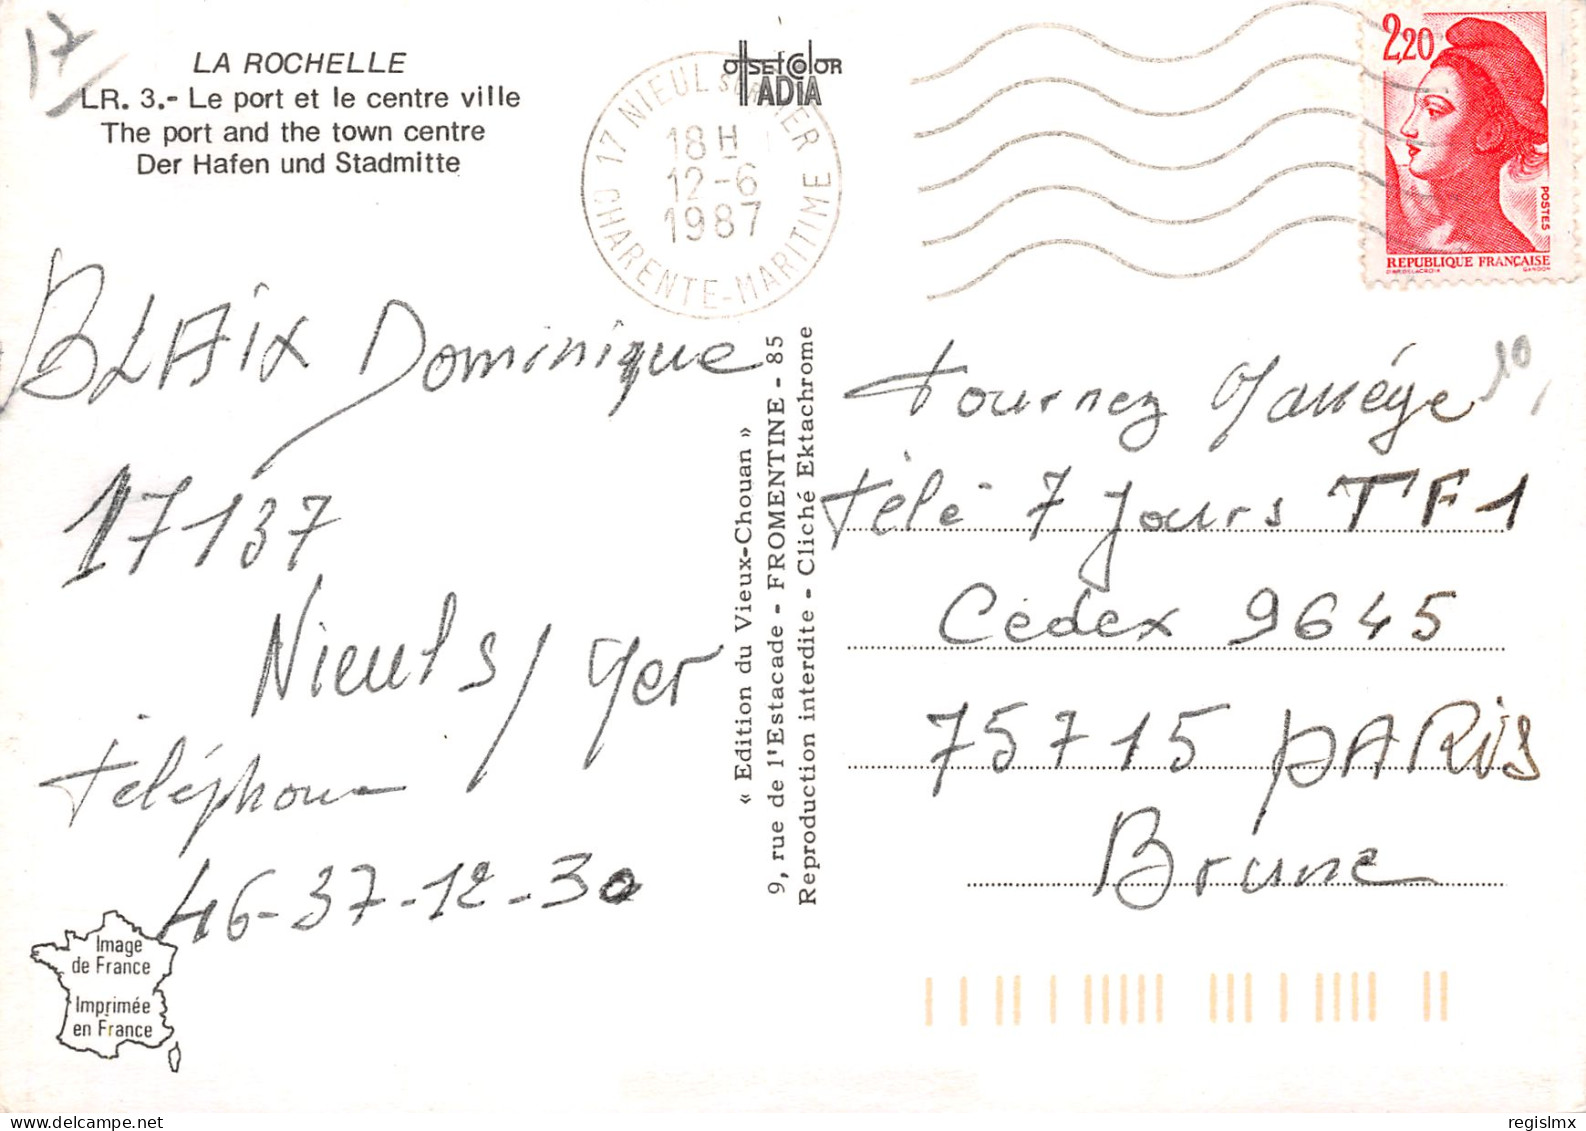 17
LA ROCHELLE
LR. 3.- Le port et le centre ville
The port and the town centre
Der Hafen und Stadmitte
OffSEt COlOR
IADIA
17 NIEUL SUR MER
18 H
12-6
1987
CHARENTE-MARITIME
2,20
POSTES
REPUBLIQUE FRANÇAISE
D'AP. DELACROIX GANDON
BLAIX Dominique
17137
Nieul s/ Mer
téléphone
46-37-12-30
« Edition du Vieux-Chouan »
9, rue de l'Estacade - FROMENTINE - 85
Reproduction interdite - Cliché Ektachrome
tournez Manège
10
télé 7 Jours TF1
Cédex 9645
75715 PARIS
Brune
Image
de France
Imprimée
en France
regislmx